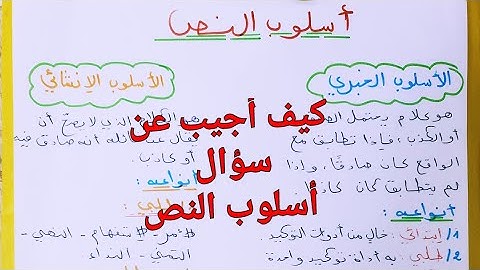 أسلوب النص
الأسلوب الخبري
هو كلام يحتمل
أو الكذب، فإذا تطابق مع
الواقع كان صادقًا، وإذا
لم يتطابق كان كاذبا
أنواعه:
1/ إبتدائي: خالٍ من أدوات التوكيد.
2/ طلبي: به أداة توكيد واحدة
الأسلوب الإنشائي
الذي لا يصحّ أن
يقال لله أنه صادق فيه
أو كاذب.
أنواعه:
طلبي:
الأمر - الإستفهام - النهي -
التمني - النداء
كيف أجيب عن
سؤال
أسلوب النص